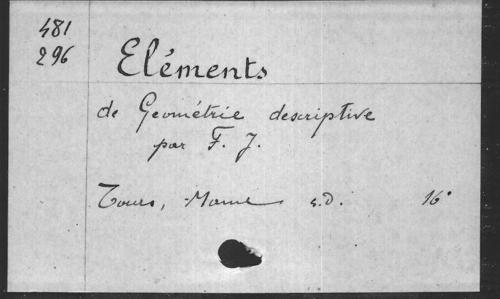 481
296
Eléments
de Geométrie descriptive
par F. J.
Tours, Mame s.d. 16°